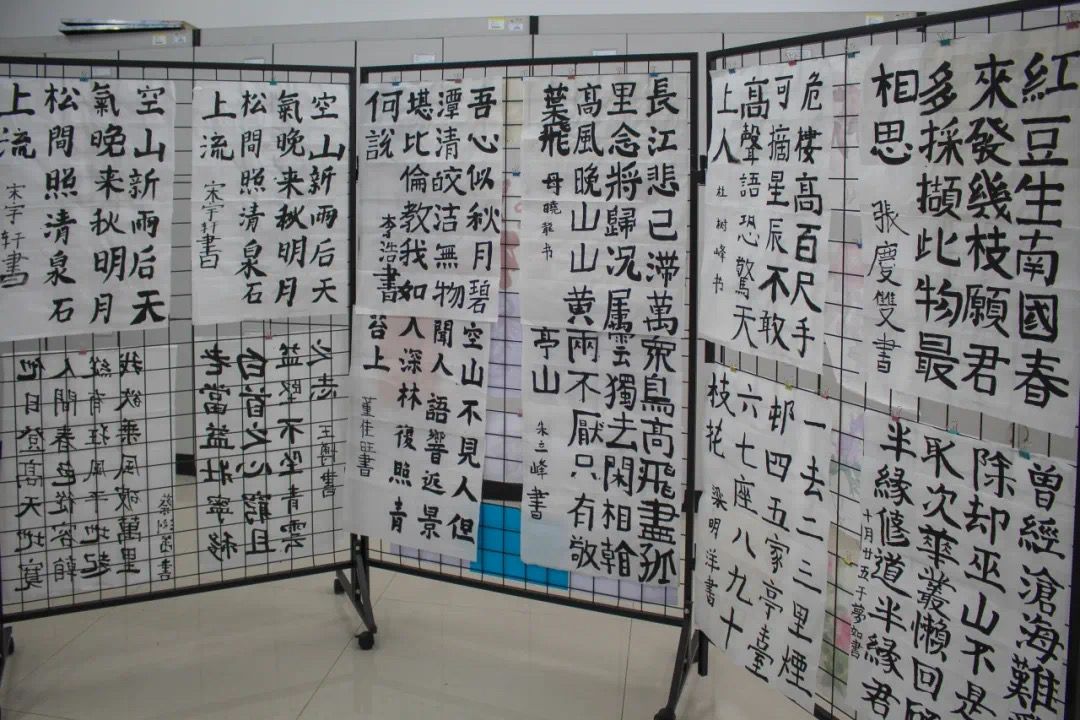 紅豆生南國春
來發幾枝願君
多採擷此物最
相思
張慶雙書
危棲高百尺手
可摘星辰不敢
高聲語恐驚天
上人
杜樹峰书
曾經滄海難
除却巫山不是
取次華叢懶回
半緣修道半緣君
十月廿五于夢如書
一去二三里煙
邨四五家亭臺
六七座八九十
枝花
梁明洋書
長江悲已滯萬
里念將歸况属
高風晚山山黄
葉飛
母曉龍书
衆鳥高飛盡孤
雲獨去閑相翰
兩不厭只有敬
亭山
朱立峰書
吾心似秋月碧
潭清皎洁無物
堪比倫教我如
何説
李浩書
空山不見人但
聞人語響返景
入深林復照青
苔上
董佳旺書
空山新雨后天
氣晚来秋明月
松間照清泉石
上流
宋宇轩書
空山新雨后天
氣晚来秋明月
松間照清泉石
上流
宋宇轩書
老當益壯寧移
白首之心窮且
益堅不坠青雲
之志
王博書
他日登高天地寬
人間春色從容
縱有狂風平地起
我欲乘風破萬里
書